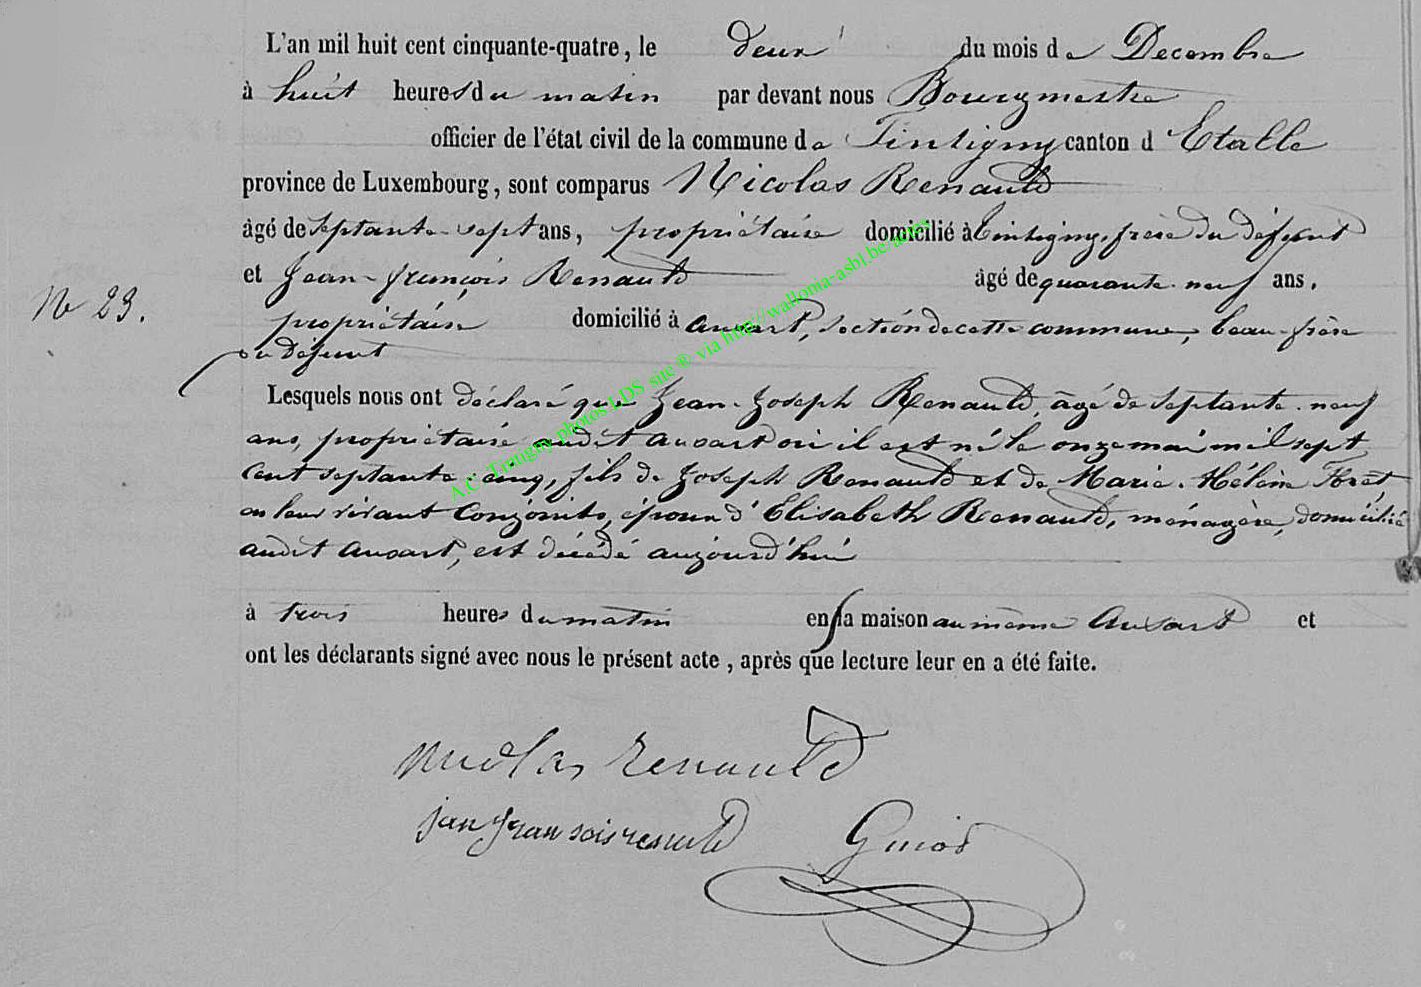 L'an mil huit cent cinquante-quatre, le deux du mois de Decembre
à huit heures du matin par devant nous Bourgmestre
officier de l'état civil de la commune de Tintigny canton d Etalle
province de Luxembourg, sont comparus Nicolas Renauld
âgé de septante-sept ans, propriétaire domicilié à Tintigny, frère du défunt
et Jean-françois Renauld âgé de quarante-neuf ans,
No 23.
propriétaire domicilié à ansart, section de cette commune, beau-frère
du défunt
Lesquels nous ont déclaré que Jean-Joseph Renauld, âgé de septante-neuf
ans, propriétaire audit ansart où il est né le onze mai mil sept
cent septante-cinq, fils de Joseph Renauld et de Marie-Hélène
en leur vivant conjoints, époux d'Elisabeth Renauld, ménagère, domicilié
audit ansart, est décédé aujourd'hui
à trois heures du matin en sa maison au même Ansart et
ont les déclarants signé avec nous le présent acte, après que lecture leur en a été faite.
nicolas renauld
jan fransois renauld Guiot
A.C. Tintigny photos LDS sue ® via http://wallonia-asbl.be/actes